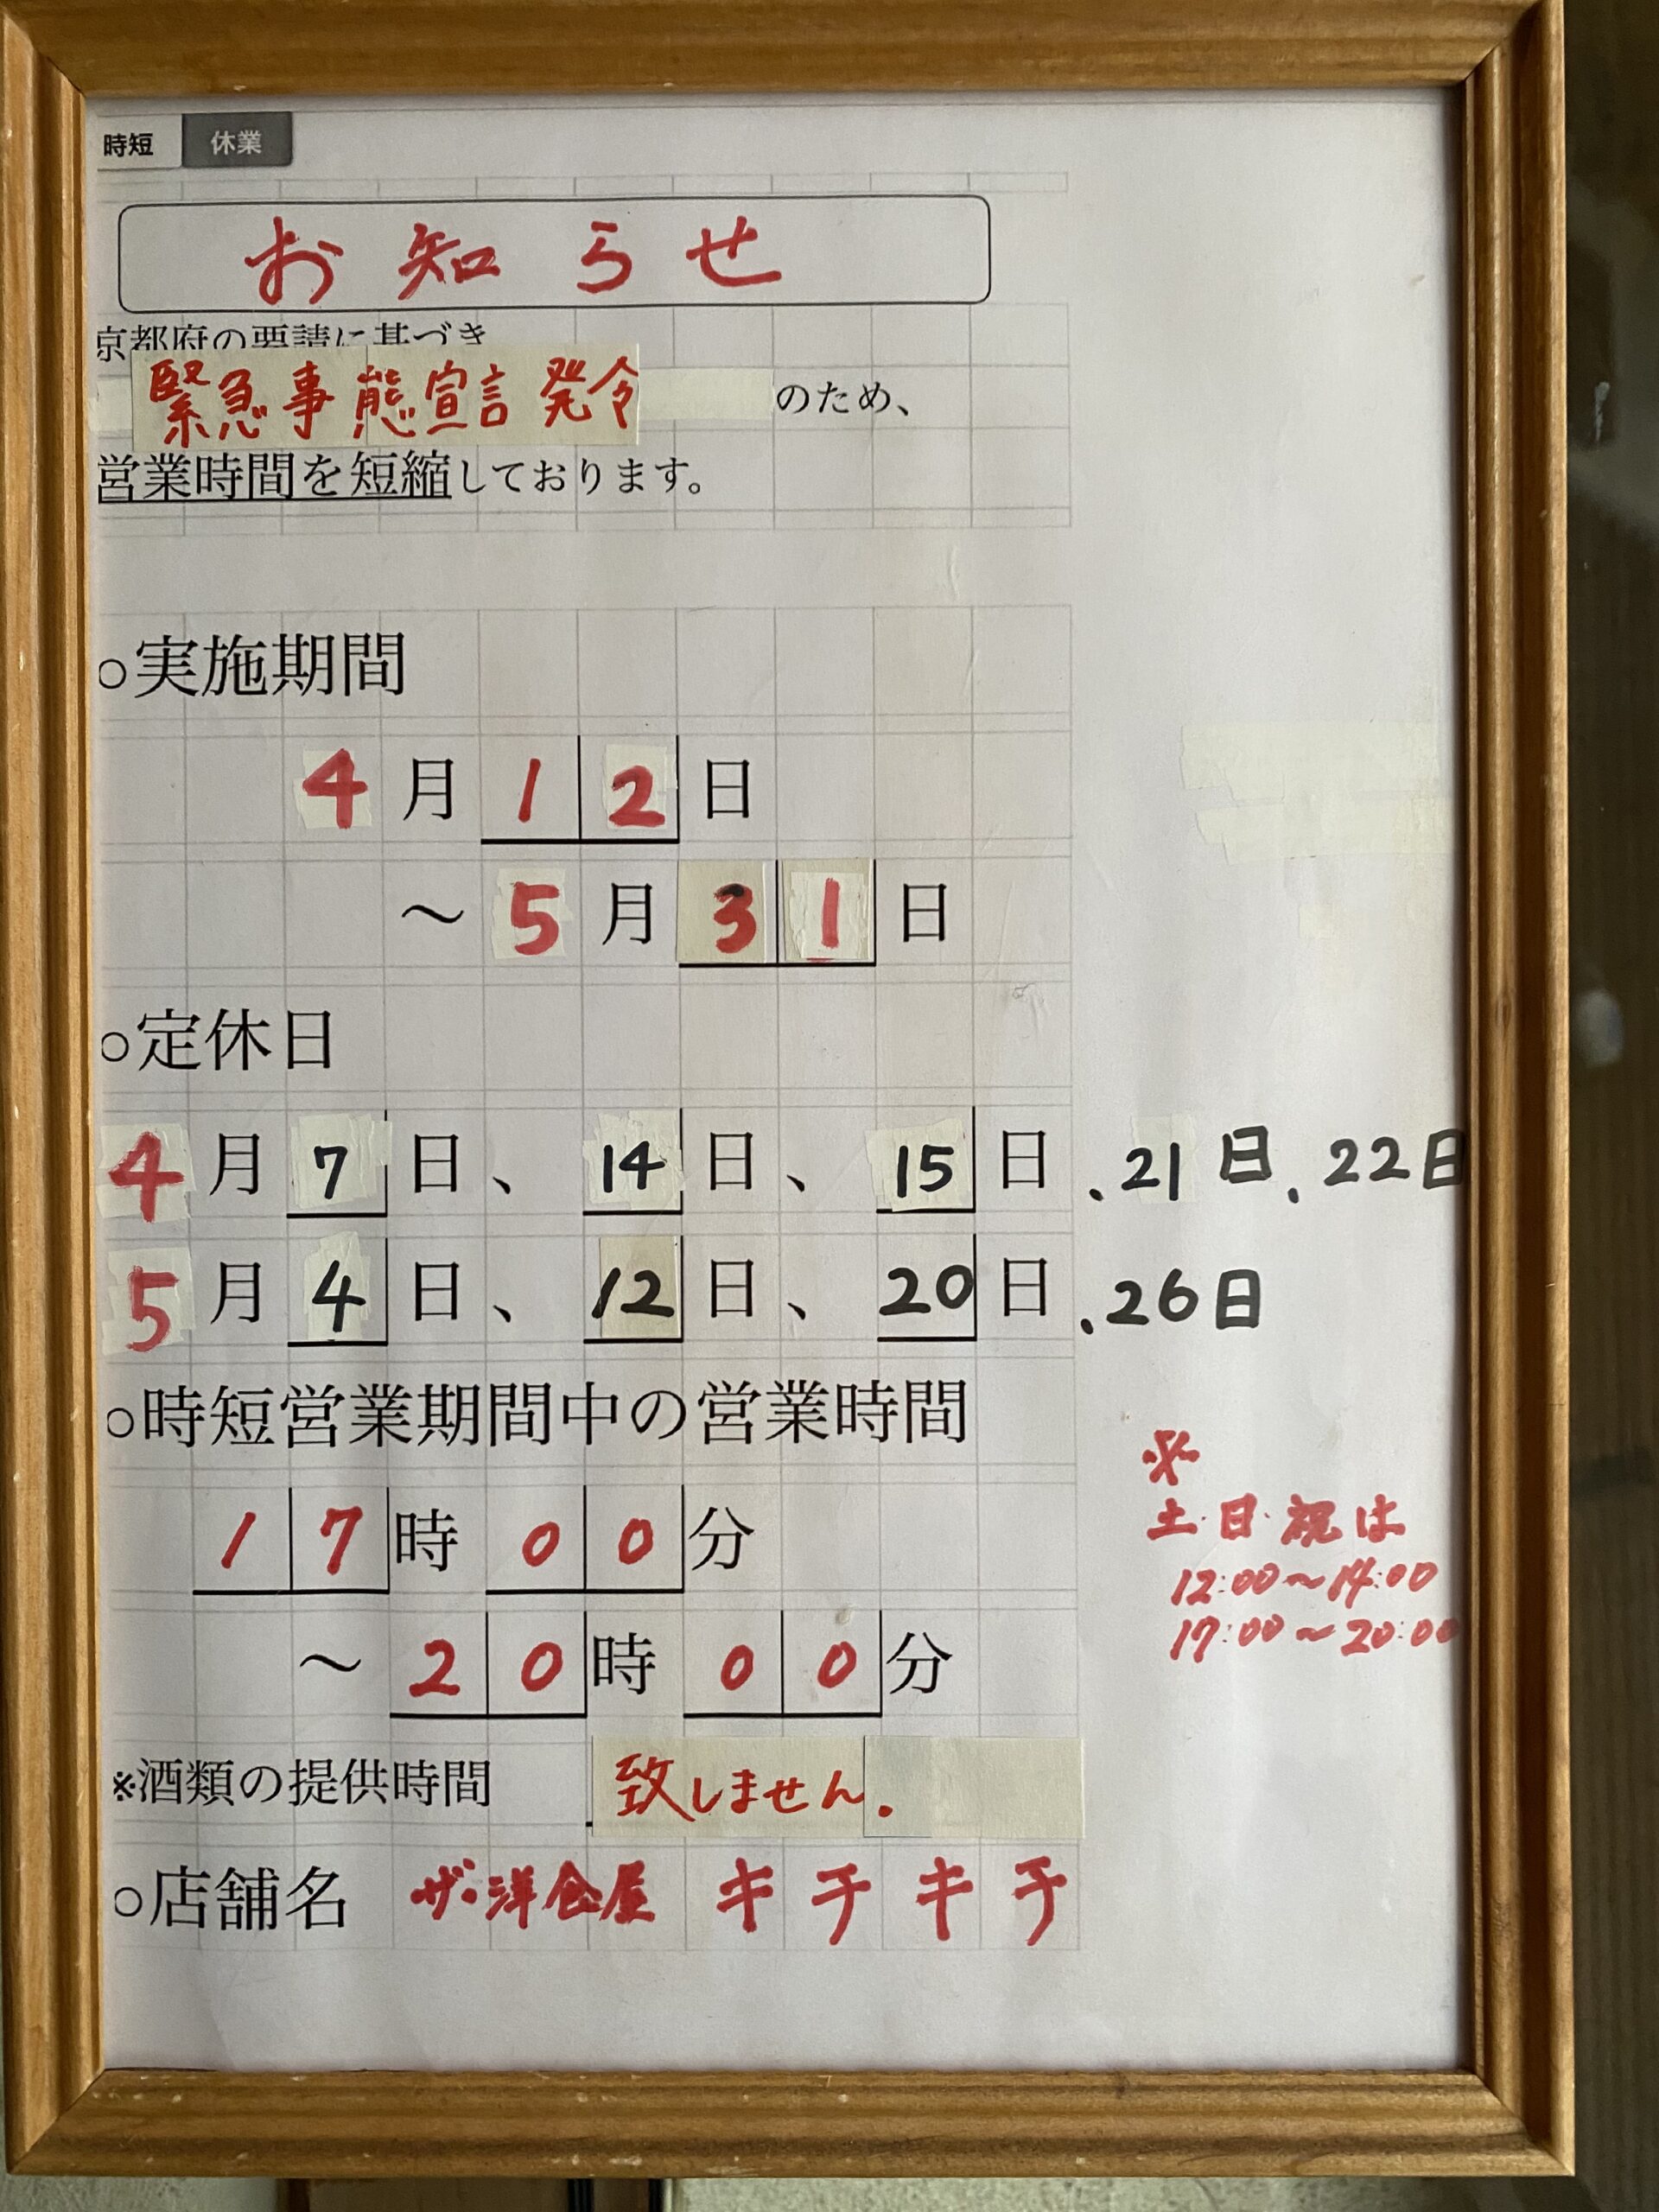 時短 休業
お知らせ
京都府の要請に基づき
緊急事態宣言発令のため、
営業時間を短縮しております。
○実施期間
4月12日
～5月31日
○定休日
4月7日、14日、15日.21日.22日
5月4日、12日、20日.26日
○時短営業期間中の営業時間
17時00分
～20時00分
※
土・日・祝は
12:00～14:00
17:00～20:00
※酒類の提供時間 致しません.
○店舗名 ザ・洋食屋 キチキチ